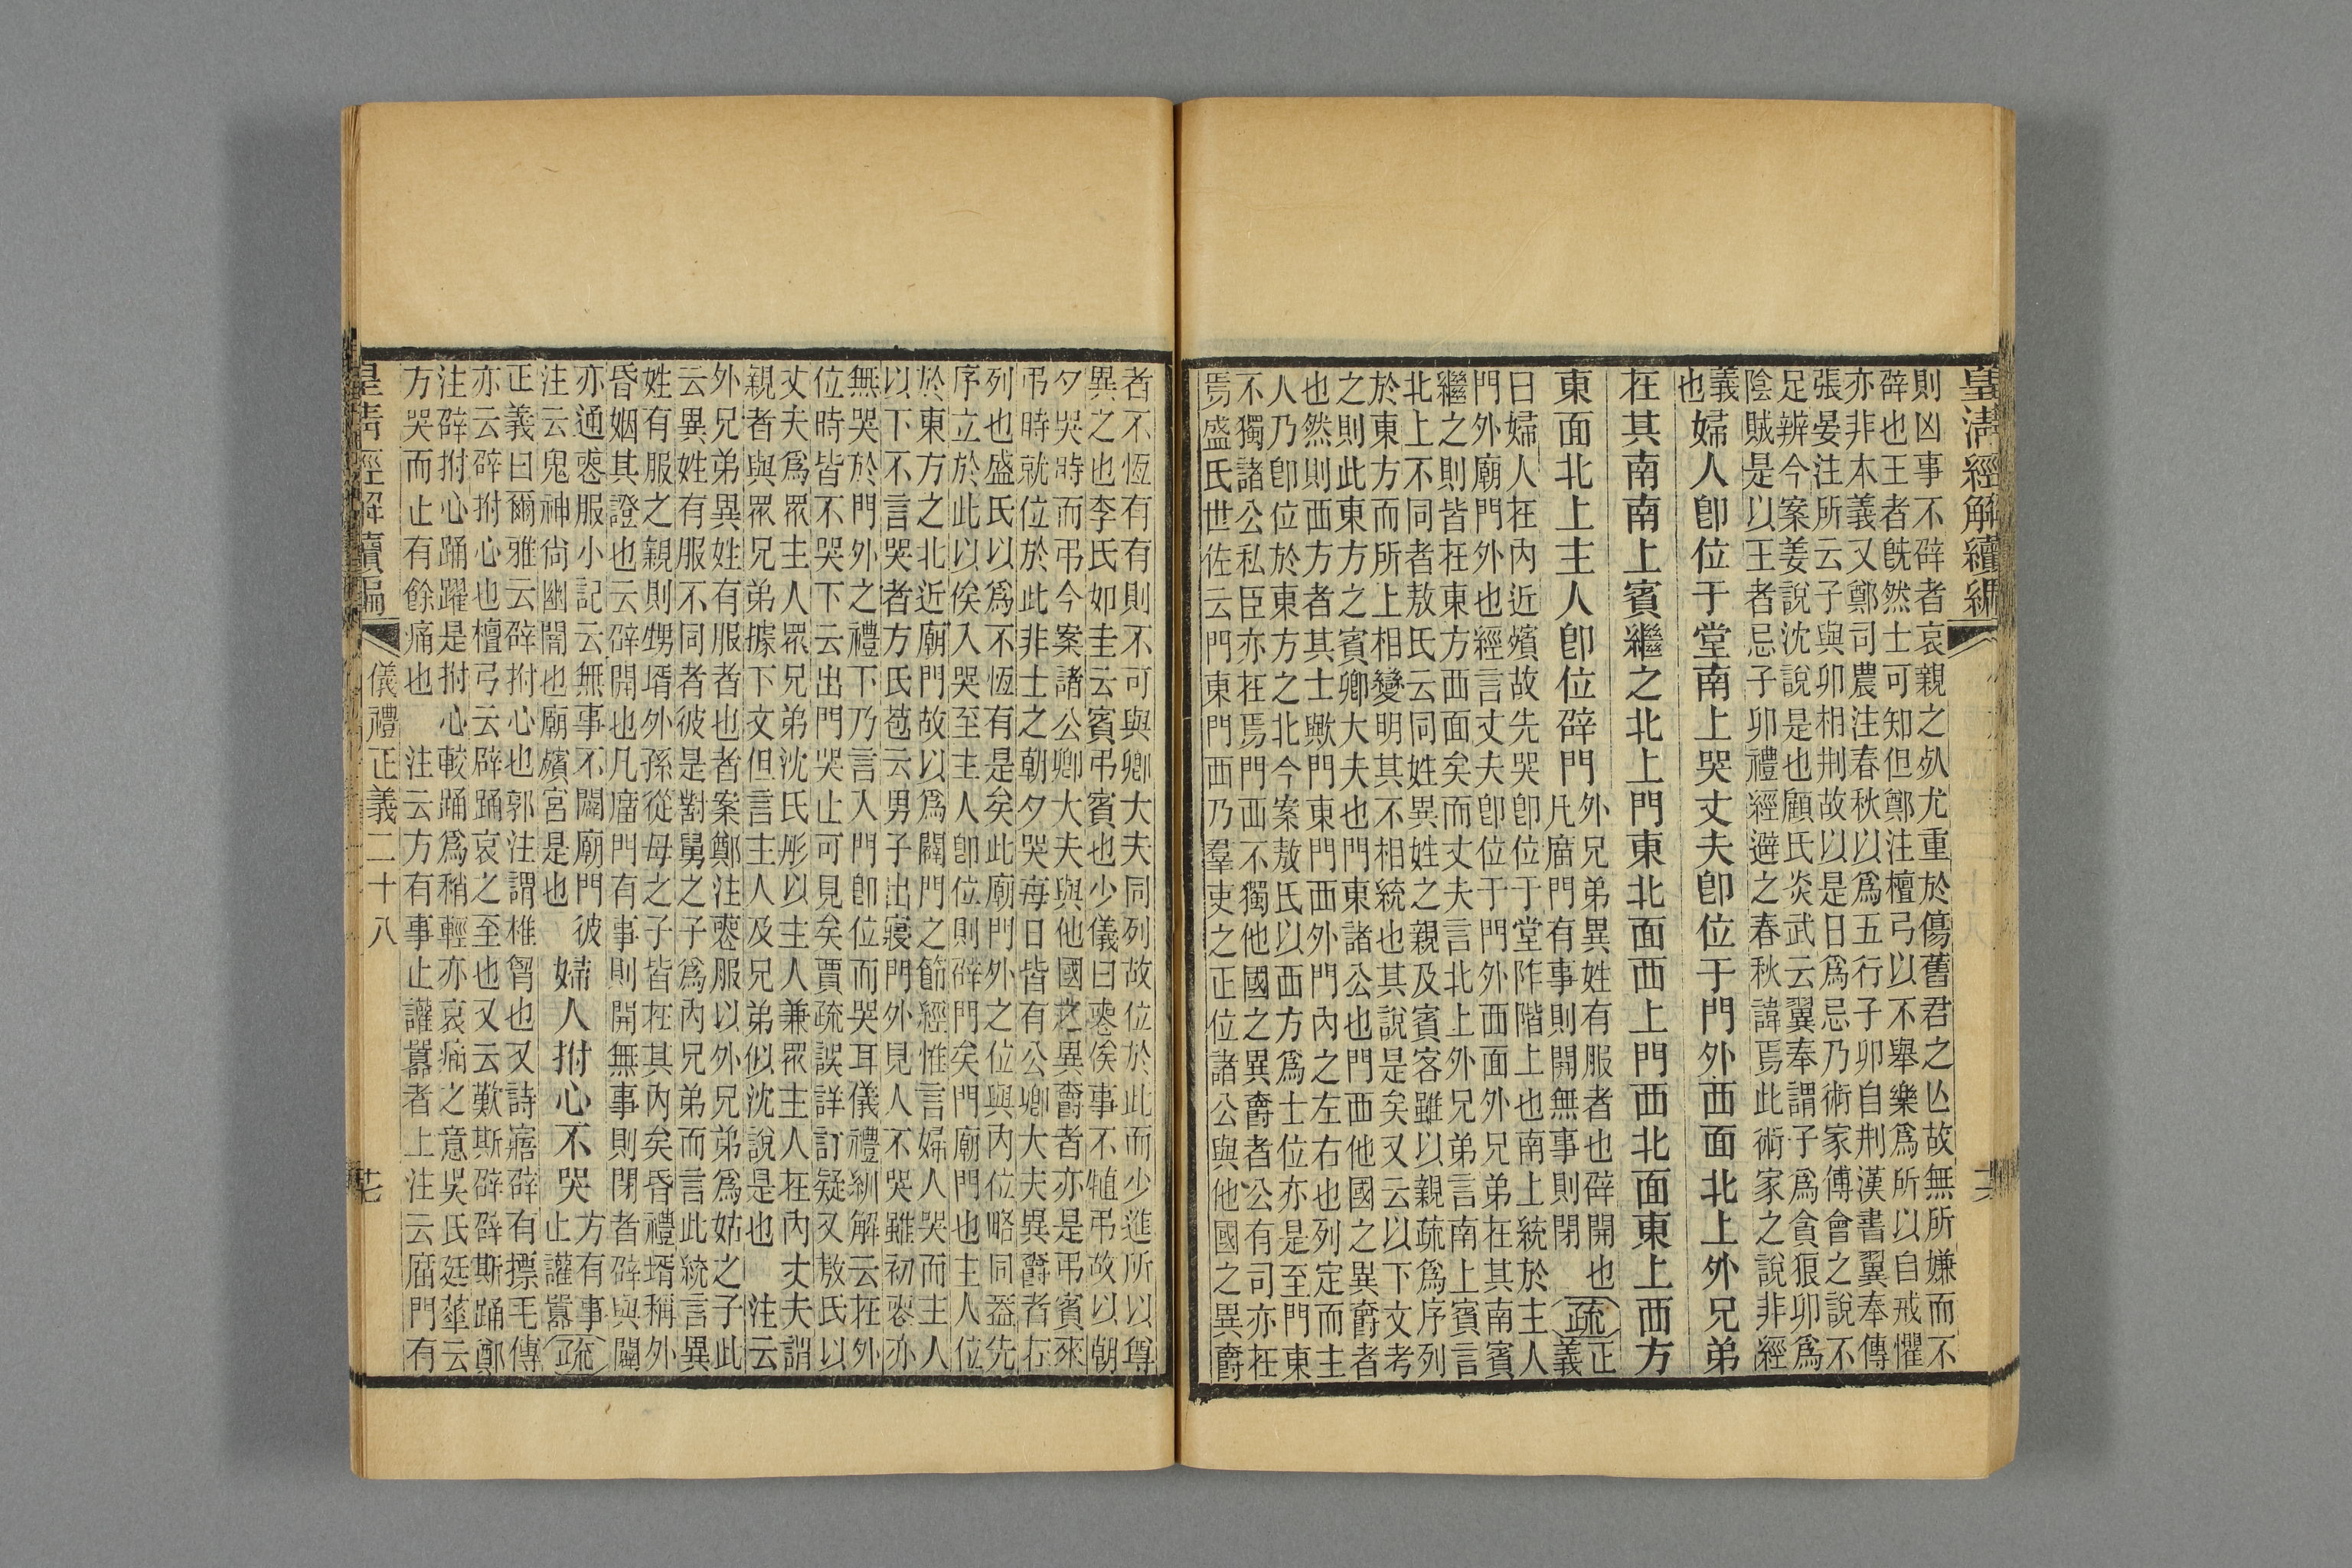 皇清經解續編
則凶事不辟者哀親之㱙尤重於傷舊君之亾故無所嫌而不
辟也王者旣然士可知但鄭注檀弓以不舉樂爲所以自戒懼
亦非本義又鄭司農注春秋以爲五行子卯自刑漢書翼奉傳
張晏注所云子與卯相刑故以是日爲忌乃術家傅會之說不
足辨今案姜說沈說是也顧氏炎武云翼奉謂子爲貪狠卯爲
陰賊是以王者忌子卯禮經避之春秋諱焉此術家之說非經
義
也
婦人卽位于堂南上哭丈夫卽位于門外西面北上外兄弟
在其南南上賓繼之北上門東北面西上門西北面東上西方
東面北上主人卽位辟門
外兄弟異姓有服者也辟開也
凡廟門有事則開無事則閉
疏
正
義
曰婦人在內近殯故先哭卽位于堂阼階上也南上統於主人
門外廟門外也經言丈夫卽位于門外西面外兄弟在其南賓
繼之則皆在東方西面矣而丈夫言北上外兄弟言南上賓言
北上不同者敖氏云同姓異姓之親及賓客雖以親疏爲序列
於東方而所上相變明其不相統也其說是矣又云以下文考
之則此東方之賓卿大夫也門東諸公也門西他國之異爵者
也然則西方者其士歟門東門西外門內之左右也列定而主
人乃卽位於東方之北今案敖氏以西方爲士位亦是至門東
不獨諸公私臣亦在焉門西不獨他國之異爵者公有司亦在
焉盛氏世佐云門東門西乃羣吏之正位諸公與他國之異爵
者不恆有有則不可與卿大夫同列故位於此而少進所以尊
異之也李氏如圭云賓弔賓也少儀曰喪俟事不犆弔故以朝
夕哭時而弔今案諸公卿大夫與他國之異爵者亦是弔賓來
弔時就位於此非士之朝夕哭每日皆有公卿大夫異爵者在
列也盛氏以爲不恆有是矣此廟門外之位與內位略同蓋先
序立於此以俟入哭至主人卽位則辟門矣門廟門也主人位
於東方之北近廟門故以爲闢門之節經惟言婦人哭而主人
以下不言哭者方氏苞云男子出寢門外見人不哭雖初喪亦
無哭於門外之禮下乃言入門卽位而哭耳儀禮紃解云在外
位時皆不哭下云出門哭止可見矣賈疏誤詳訂疑又敖氏以
丈夫爲眾主人眾兄弟沈氏彤以主人兼眾主人在內丈夫謂
親者與眾兄弟據下文但言主人及兄弟似沈說是也　注云
外兄弟異姓有服者也者案鄭注喪服以外兄弟爲姑之子此
云異姓有服不同者彼是對舅之子爲內兄弟而言此統言異
姓有服之親則甥壻外孫從母之子皆在其內矣昏禮壻稱外
昏姻其證也云辟開也凡廟門有事則開無事則閉者辟與闢
亦通喪服小記云無事不闢廟門彼
注云鬼神尙幽闇也廟殯宮是也
婦人拊心不哭
方有事
止讙嚻
疏
正義曰爾雅云辟拊心也郭注謂椎胷也又詩寤辟有摽毛傳
亦云辟拊心也檀弓云辟踊哀之至也又云歎斯辟辟斯踊鄭
注辟拊心踊躍是拊心較踊爲稍輕亦哀痛之意吳氏廷華云
方哭而止有餘痛也　注云方有事止讙嚻者上注云廟門有
皇清經解續編
儀禮正義二十八